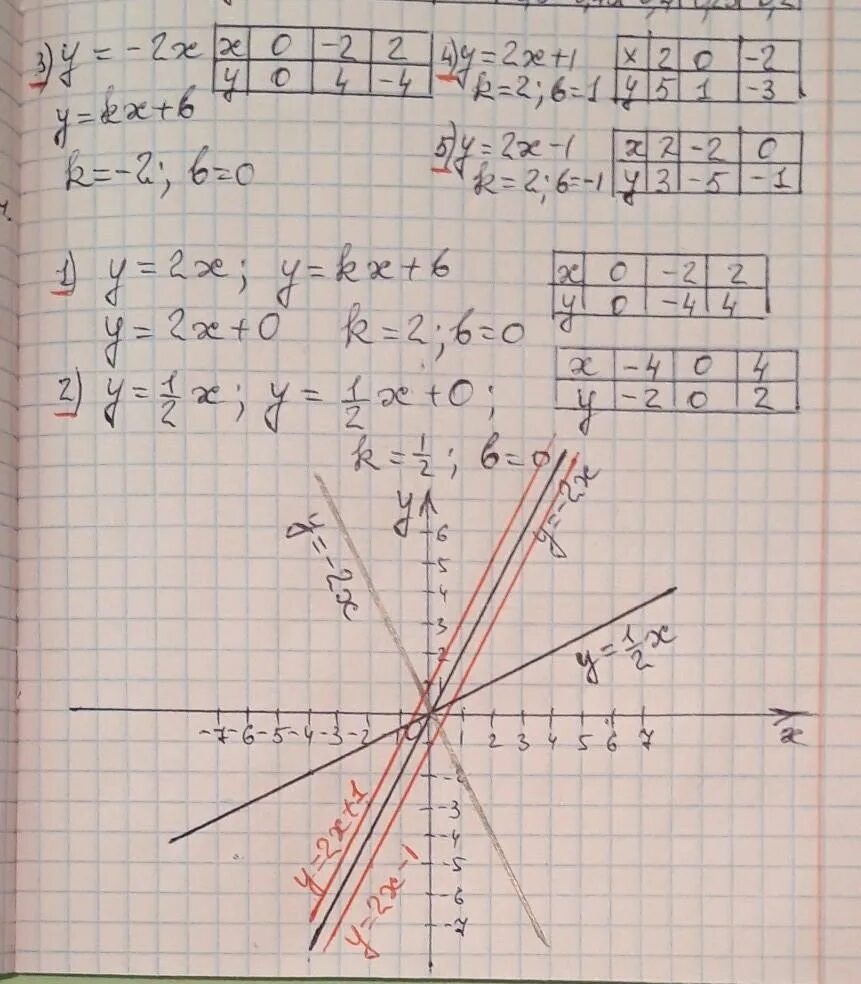 3) y = -2x
x 0 -2 2
y 0 4 -4
y = kx + b
k = -2; b = 0
4) y = 2x+1
k = 2; b = 1
x 2 0 -2
y 5 1 -3
5) y = 2x - 1
k = 2; b = -1
x 2 -2 0
y 3 -5 -1
1) y = 2x; y = kx + b
y = 2x + 0 k = 2; b = 0
x 0 -2 2
y 0 -4 4
2) y = 1/2 x; y = 1/2 x + 0;
k = 1/2; b = 0
x -4 0 4
y -2 0 2
y
y = -2x
y = -2x
y = 1/2 x
6
5
4
3
2
1
-7 -6 -5 -4 -3 -2 0 1 2 3 4 5 6 7
x
-3
-4
-5
-6
-7
y = 2x+1
y = 2x-1